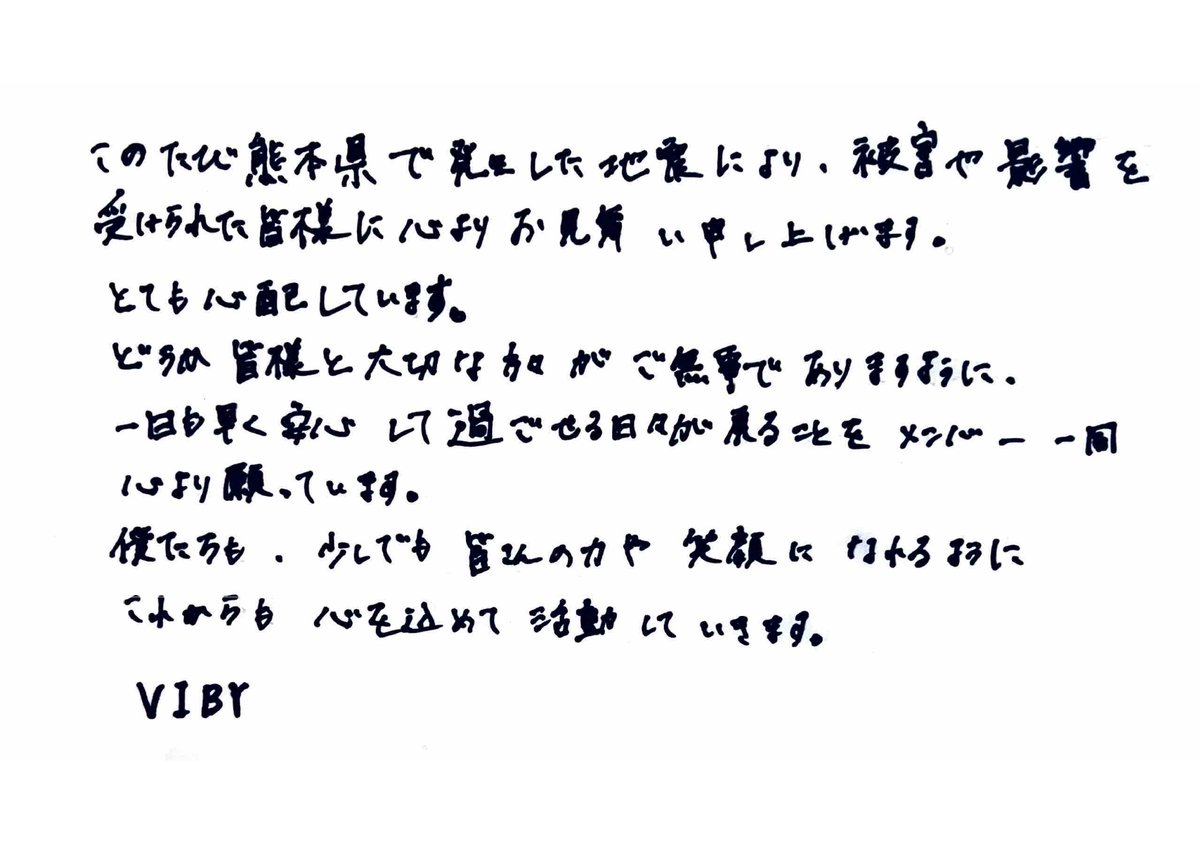 このたび熊本県で発生した地震により、被害や影響を
受けられた皆様に心よりお見舞い申し上げます。
とても心配しています。
どうか皆様と大切な方々がご無事でありますように、
一日も早く安心して過ごせる日々が戻ることをメンバー一同
心より願っています。
僕たちも、少しでも皆さんの力や笑顔になれるように
これからも心を込めて活動していきます。
VIBY